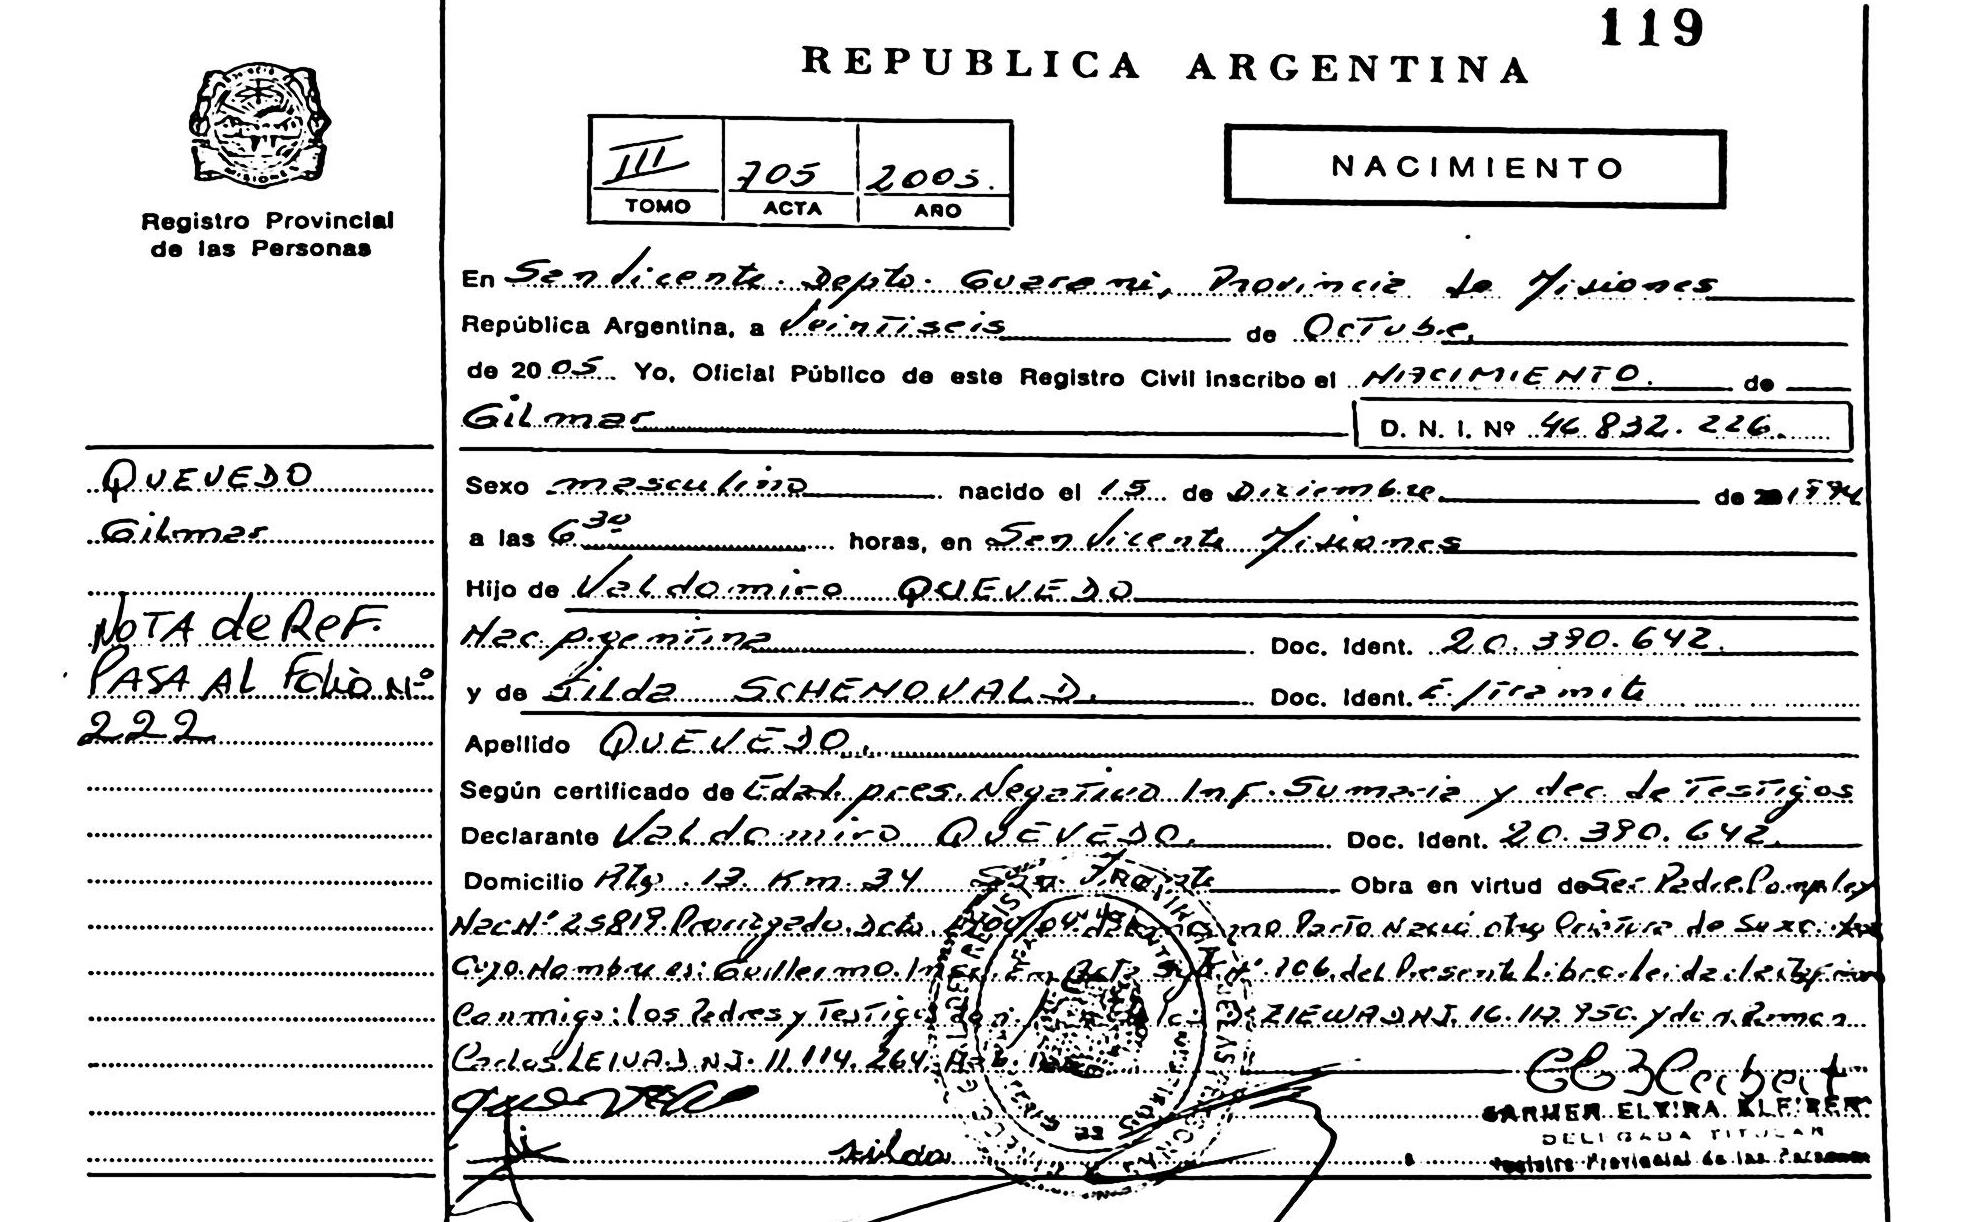 119
REPUBLICA ARGENTINA
III 705 2005.
TOMO ACTA AÑO
NACIMIENTO
Registro Provincial
de las Personas
En San Vicente. Depto. Guarani, Provincia de Misiones
República Argentina, a Veintiseis de Octubre,
de 2005. Yo, Oficial Público de este Registro Civil inscribo el NACIMIENTO. de
Gilmar D. N. I. Nº 46.832.226.
QUEVEDO
Gilmar
NOTA de ReF.
PASA AL Folio Nº
222
Sexo masculino nacido el 15 de Diciembre de 1994
a las 6 30 horas, en San Vicente Misiones
Hijo de Valdomiro QUEVEDO
Nac. Argentina Doc. Ident. 20.390.642.
y de Silda SCHEMOVALD. Doc. Ident. E/tramite
Apellido QUEVEDO.
Según certificado de Edad. pres. Negativo Inf. Sumaria y dec. de Testigos
Declarante Valdomiro QUEVEDO. Doc. Ident. 20.390.642.
Domicilio Rta. 13. Km. 34 San Vicente Obra en virtud de Ser Padre
Nac Nº 25819. Dcto. Parto Nació de Sexo
Cuyo Nombre es: Guillermo. Nº 706. del Presente Libro. leida
Conmigo: los Padres y Testigos ZIEWA DNI. 16.112.950. y don Roman
Carlos LEIVA DNI. 11.114.264.
silda
CARMEN ELVIRA KLEIBER
DELEGADA TITULAR
Registro Provincial de las Personas